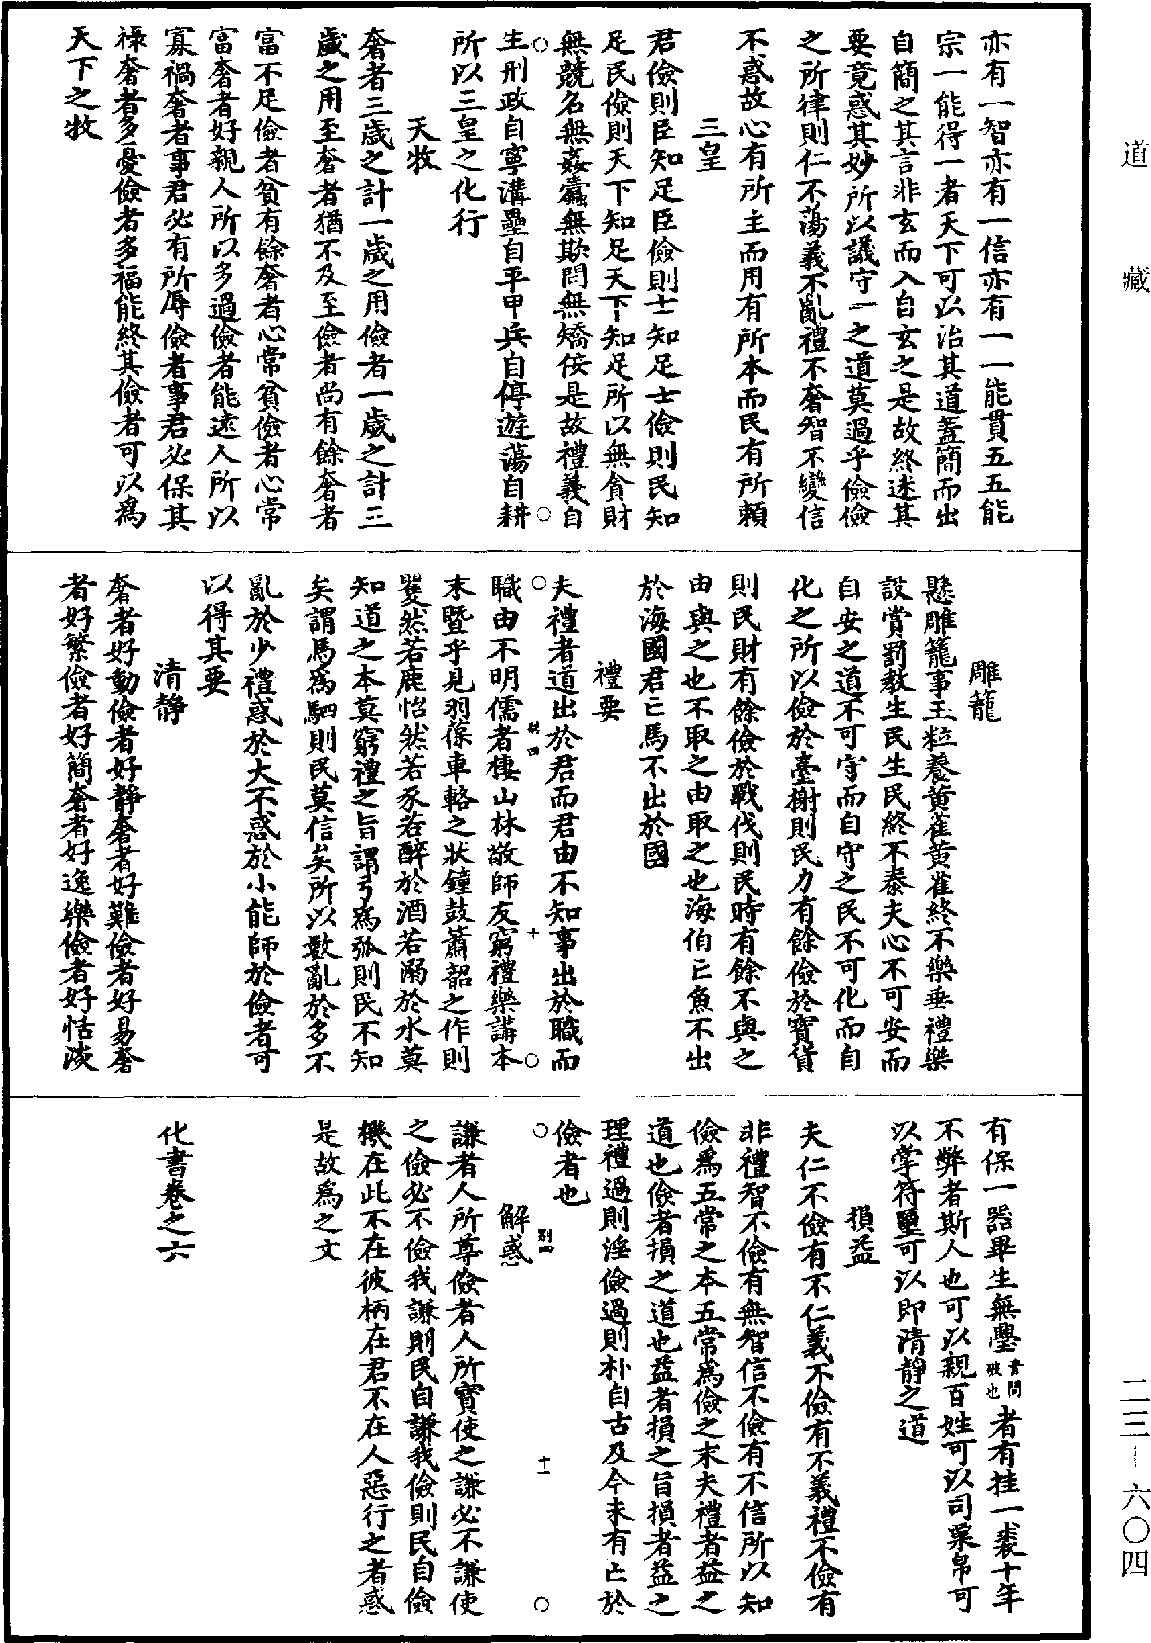 道藏
亦有一智亦有一信亦有一一能貫五五能
宗一能得一者天下可以治其道蓋簡而出
自簡之其言非玄而入自玄之是故終迷其
要竟惑其妙所以議守一之道莫過乎儉儉
之所律則仁不蕩義不亂禮不奢智不變信
不惑故心有所主而用有所本而民有所賴
三皇
君儉則臣知足臣儉則士知足士儉則民知
足民儉則天下知足天下知足所以無貪財
無競名無姦蠹無欺罔無矯佞是故禮義自
生刑政自寧溝壘自平甲兵自停遊蕩自耕
所以三皇之化行
天牧
奢者三歲之計一歲之用儉者一歲之計三
歲之用至奢者猶不及至儉者尚有餘奢者
富不足儉者貧有餘奢者心常貧儉者心常
富奢者好親人所以多過儉者能遠人所以
寡禍奢者事君必有所辱儉者事君必保其
祿奢者多憂儉者多福能終其儉者可以為
天下之牧
雕籠
懸雕籠事玉粒養黃雀黃雀終不樂垂禮樂
設賞罰教生民生民終不泰夫心不可安而
自安之道不可守而自守之民不可化而自
化之所以儉於臺榭則民力有餘儉於寶貨
則民財有餘儉於戰伐則民時有餘不與之
由與之也不取之由取之也海伯亡魚不出
於海國君亡馬不出於國
禮要
夫禮者道出於君而君由不知事出於職而
職由不明儒者棲山林敬師友窮禮樂講本
末暨乎見羽葆車輅之狀鐘鼓簫韶之作則
矍然若鹿怡然若豕若醉於酒若溺於水莫
知道之本莫窮禮之旨謂弓為弧則民不知
矣謂馬為駟則民莫信矣所以數亂於多不
亂於少禮惑於大不惑於小能師於儉者可
以得其要
清靜
奢者好動儉者好靜奢者好難儉者好易奢
者好繁儉者好簡奢者好逸樂儉者好恬淡
有保一器畢生無璺音問破也者有挂一裘十年
不弊者斯人也可以親百姓可以司粟帛可
以掌符璽可以即清靜之道
損益
夫仁不儉有不仁義不儉有不義禮不儉有
非禮智不儉有無智信不儉有不信所以知
儉為五常之本五常為儉之末夫禮者益之
道也儉者損之道也益者損之旨損者益之
理禮過則淫儉過則朴自古及今未有亡於
儉者也
解惑
謙者人所尊儉者人所寶使之謙必不謙使
之儉必不儉我謙則民自謙我儉則民自儉
機在此不在彼柄在君不在人惡行之者惑
是故為之文
化書卷之六
二三—六〇四